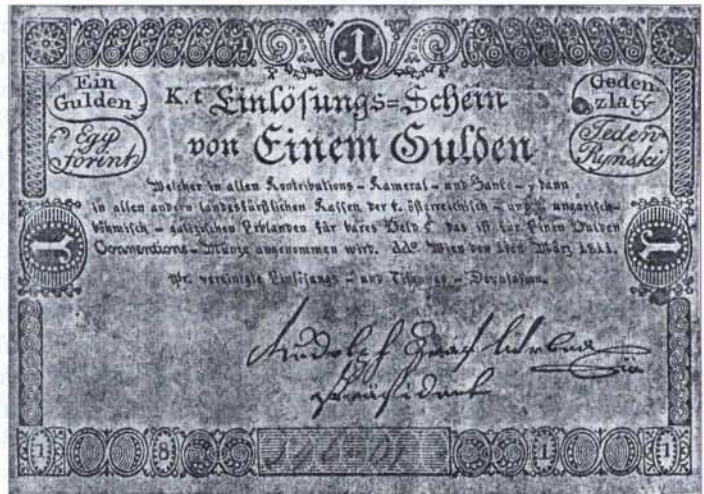 1
Ein
Gulden
Egy
forint
Geden
zlatÿ
Jeden
Ryński
K. t Einlösungs=Schein
von Einem Gulden
Welcher in allen Kontributions-Kameral-und Banko-, dann
in allen andern landesfürstlichen Kassen der k. österreichisch-und ungarisch-
böhmisch-galizischen Erblanden für bares Geld, das ist für Einen Gulden
Conventions-Münze angenommen wird. ddo. Wien den 1ten März 1811.
Wr. vereinigte Einlösungs-und Tilgungs-Deputation.
Rudolph Graf
Präsident
1
1
1
8
1
1